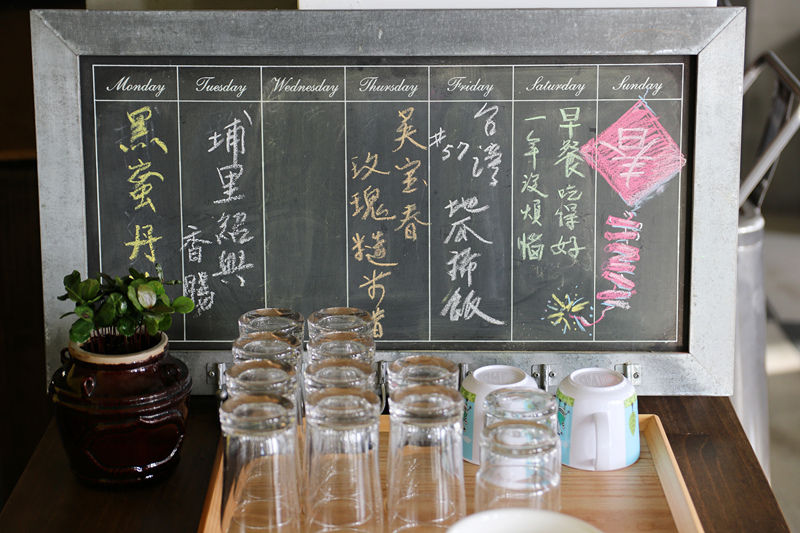 Monday
Tuesday
Wednesday
Thursday
Friday
Saturday
Sunday
黑蜜丹
埔里紹興
香腸
吳宝春
玫瑰糙米香
台灣
#57
地瓜稀飯
早餐吃得好
一年沒煩惱
春